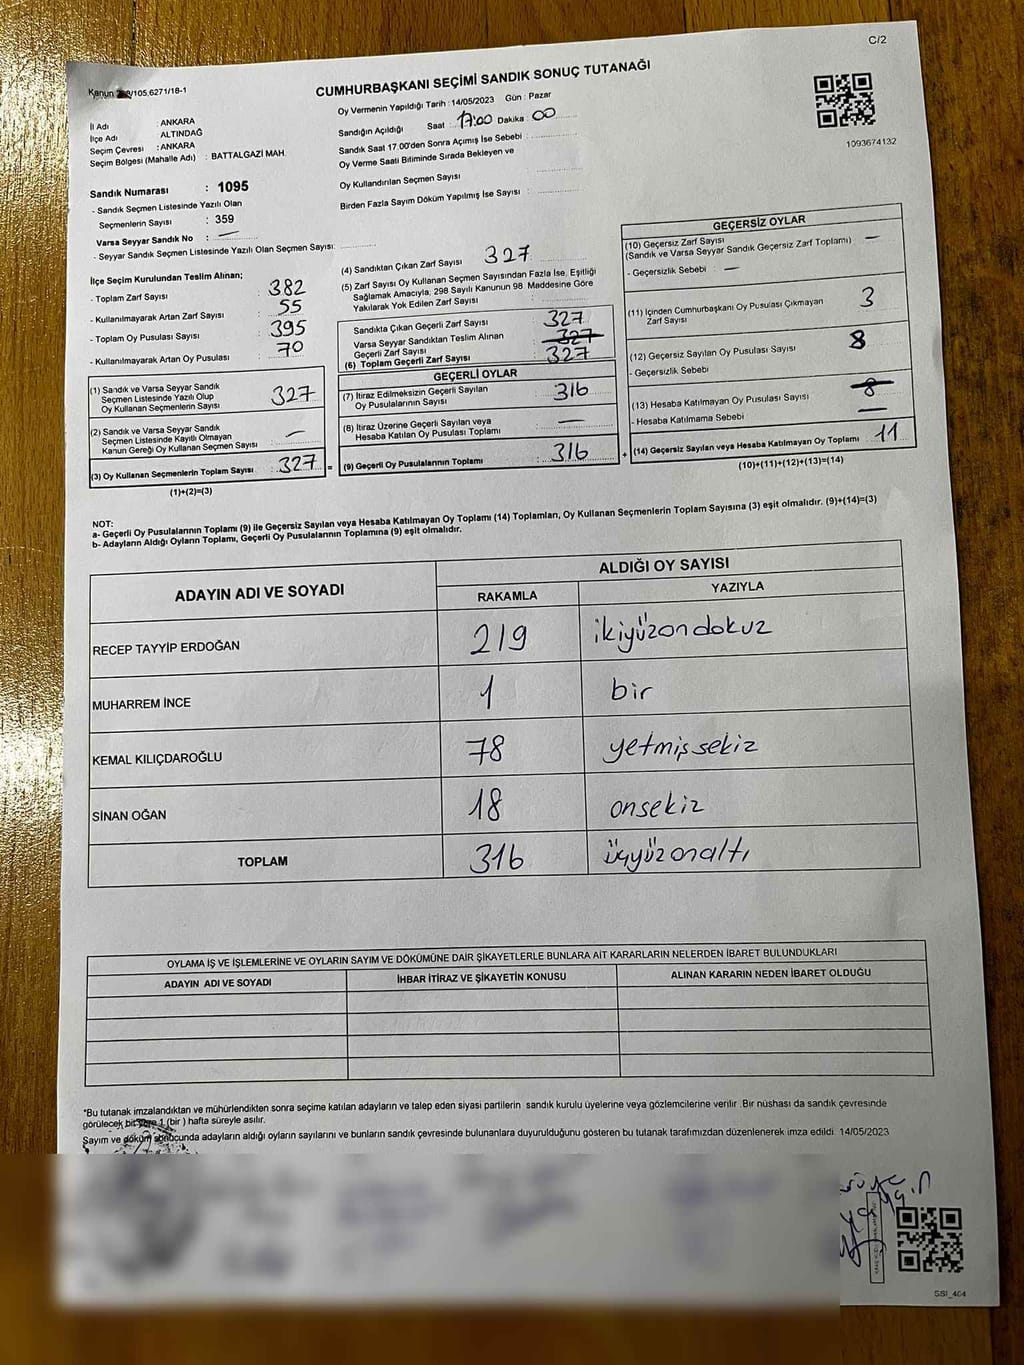 C/2
Kanun /105,6271/18-1
CUMHURBAŞKANI SEÇİMİ SANDIK SONUÇ TUTANAĞI
Oy Vermenin Yapıldığı Tarih : 14/05/2023 Gün : Pazar
İl Adı : ANKARA
İlçe Adı : ALTINDAĞ
Seçim Çevresi : ANKARA
Seçim Bölgesi (Mahalle Adı) : BATTALGAZİ MAH.
Sandığın Açıldığı Saat : 17:00 Dakika : 00
Sandık Saat 17.00'den Sonra Açımış İse Sebebi :
Oy Verme Saati Bitiminde Sırada Bekleyen ve
Oy Kullandırılan Seçmen Sayısı
Birden Fazla Sayım Döküm Yapılmış İse Sayısı :
1093674132
Sandık Numarası : 1095
- Sandık Seçmen Listesinde Yazılı Olan
Seçmenlerin Sayısı : 359
Varsa Seyyar Sandık No : —
- Seyyar Sandık Seçmen Listesinde Yazılı Olan Seçmen Sayısı:
İlçe Seçim Kurulundan Teslim Alınan;
- Toplam Zarf Sayısı : 382
- Kullanılmayarak Artan Zarf Sayısı : 55
- Toplam Oy Pusulası Sayısı : 395
- Kullanılmayarak Artan Oy Pusulası : 70
(1) Sandık ve Varsa Seyyar Sandık
Seçmen Listesinde Yazılı Olup
Oy Kullanan Seçmenlerin Sayısı : 327
(2) Sandık ve Varsa Seyyar Sandık
Seçmen Listesinde Kayıtlı Olmayan
Kanun Gereği Oy Kullanan Seçmen Sayısı : —
(3) Oy Kullanan Seçmenlerin Toplam Sayısı : 327 =
(1)+(2)=(3)
(4) Sandıktan Çıkan Zarf Sayısı : 327
(5) Zarf Sayısı Oy Kullanan Seçmen Sayısından Fazla İse, Eşitliği
Sağlamak Amacıyla, 298 Sayılı Kanunun 98. Maddesine Göre
Yakılarak Yok Edilen Zarf Sayısı :
Sandıkta Çıkan Geçerli Zarf Sayısı : 327
Varsa Seyyar Sandıktan Teslim Alınan
Geçerli Zarf Sayısı : 327
(6) Toplam Geçerli Zarf Sayısı : 327
GEÇERLİ OYLAR
(7) İtiraz Edilmeksizin Geçerli Sayılan
Oy Pusulalarının Sayısı : 316
(8) İtiraz Üzerine Geçerli Sayılan veya
Hesaba Katılan Oy Pusulası Toplamı : —
(9) Geçerli Oy Pusulalarının Toplamı : 316 +
GEÇERSİZ OYLAR
(10) Geçersiz Zarf Sayısı : —
(Sandık ve Varsa Seyyar Sandık Geçersiz Zarf Toplamı)
- Geçersizlik Sebebi : —
(11) İçinden Cumhurbaşkanı Oy Pusulası Çıkmayan
Zarf Sayısı : 3
(12) Geçersiz Sayılan Oy Pusulası Sayısı : 8
- Geçersizlik Sebebi :
(13) Hesaba Katılmayan Oy Pusulası Sayısı : 8
- Hesaba Katılmama Sebebi : —
(14) Geçersiz Sayılan veya Hesaba Katılmayan Oy Toplamı : 11
(10)+(11)+(12)+(13)=(14)
NOT:
a- Geçerli Oy Pusulalarının Toplamı (9) ile Geçersiz Sayılan veya Hesaba Katılmayan Oy Toplamı (14) Toplamları, Oy Kullanan Seçmenlerin Toplam Sayısına (3) eşit olmalıdır. (9)+(14)=(3)
b- Adayların Aldığı Oyların Toplamı, Geçerli Oy Pusulalarının Toplamına (9) eşit olmalıdır.
ADAYIN ADI VE SOYADI
ALDIĞI OY SAYISI
RAKAMLA YAZIYLA
RECEP TAYYİP ERDOĞAN 219 ikiyüzondokuz
MUHARREM İNCE 1 bir
KEMAL KILIÇDAROĞLU 78 yetmişsekiz
SİNAN OĞAN 18 onsekiz
TOPLAM 316 üçyüzonaltı
OYLAMA İŞ VE İŞLEMLERİNE VE OYLARIN SAYIM VE DÖKÜMÜNE DAİR ŞİKAYETLERLE BUNLARA AİT KARARLARIN NELERDEN İBARET BULUNDUKLARI
ADAYIN ADI VE SOYADI İHBAR İTİRAZ VE ŞİKAYETİN KONUSU ALINAN KARARIN NEDEN İBARET OLDUĞU
*Bu tutanak imzalandıktan ve mühürlendikten sonra seçime katılan adayların ve talep eden siyasi partilerin sandık kurulu üyelerine veya gözlemcilerine verilir .Bir nüshası da sandık çevresinde
görülecek bir yere 1 (bir ) hafta süreyle asılır.
Sayım ve döküm sonucunda adayların aldığı oyların sayılarını ve bunların sandık çevresinde bulunanlara duyurulduğunu gösteren bu tutanak tarafımızdan düzenlenerek imza edildi. 14/05/2023
SSI_464